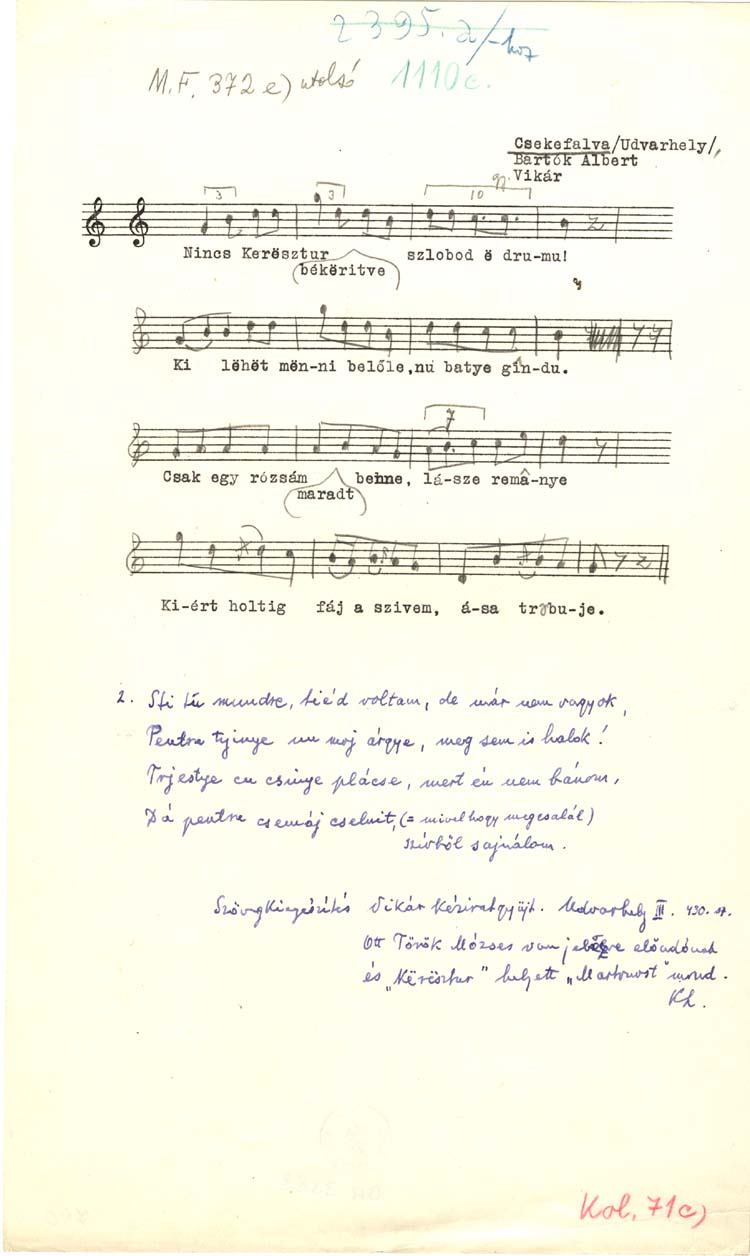 2395.a/-hoz
M.F. 372 e) utolsó 1110c.
Csekefalva/Udvarhely/,
Bartók Albert
Vikár
3 3 10
Nincs Kerësztur szlobod ë dru-mu!
békëritve
Ki lëhët mën-ni belőle,nu batye gîn-du.
7
Csak egy rózsám benne, lá-sze remâ-nye
maradt
Ki-ért holtig fáj a szivem, á-sa trebu-je.
2. Sti tu mundre, tiéd voltam, de már nem vagyok,
Pentru tyinye nu moj árgye, meg sem is halok!
Trjestye cu csinye plácse, mert én nem bánom,
Dá pentru csemáj cseluit, (= mivelhogy megcsalál)
szívből sajnálom.
Szövegkiegészítés Vikár Kéziratgyüjt. Udvarhely III. 430. sz.
Ott Török Mózses van jelölve előadónak
és "Kërësztur" helyett "Martonost" mond.
Kh.
Kol. 71c)